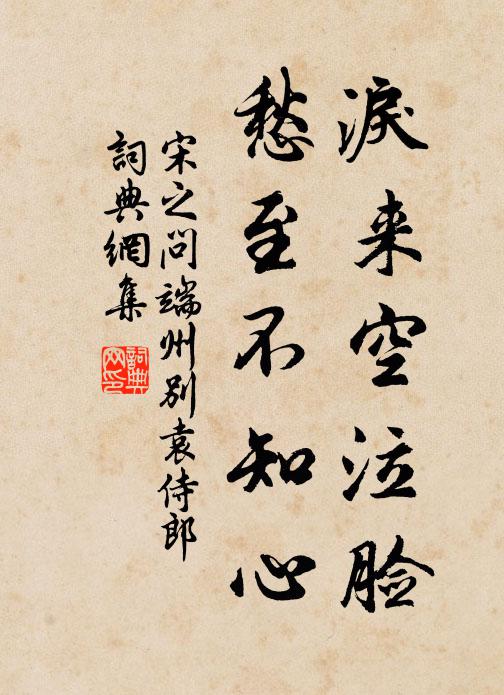 淚来空泣脸
愁至不知心
宋之问端州别袁侍郎
詞典網集
詞典网印